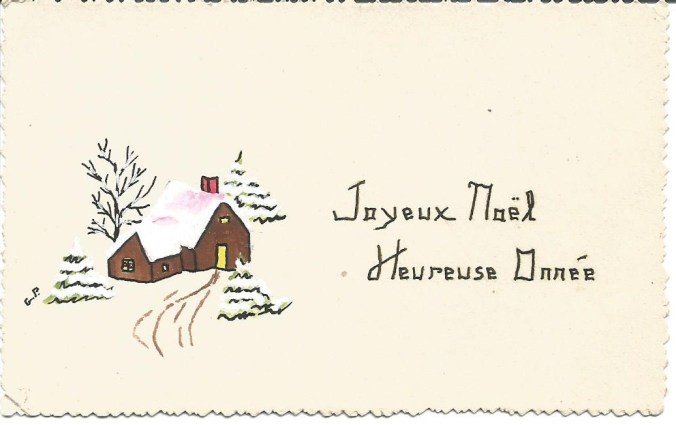 Joyeux Noël
Heureuse Année
G.P.